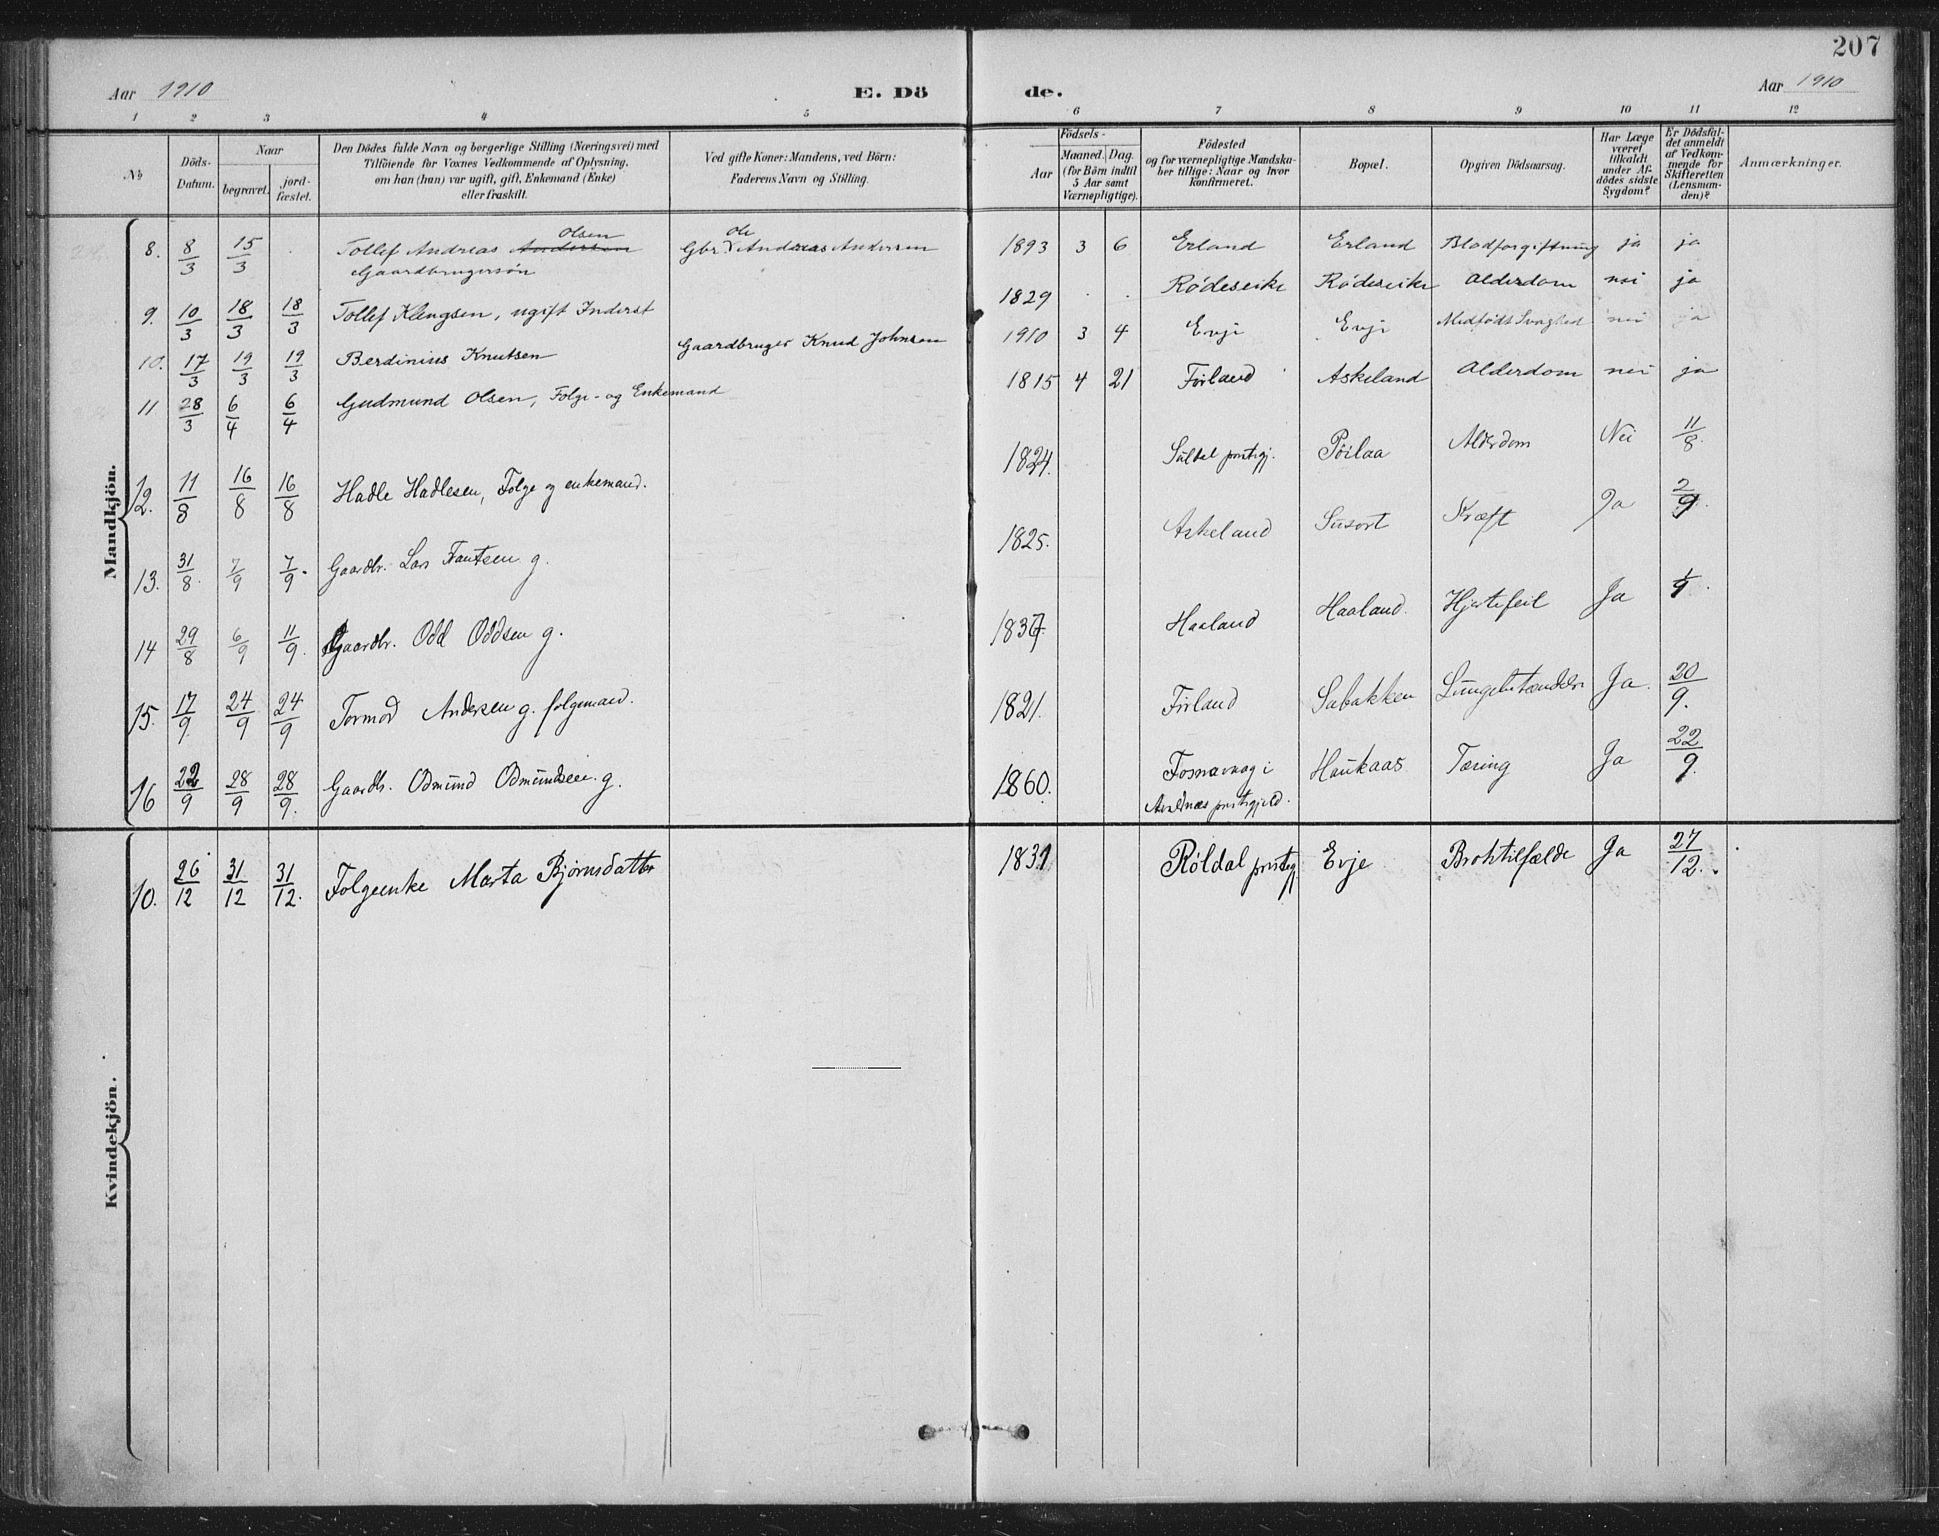 207
Aar 1910 E. Dö de. Aar 1910
1 2 3 4 5 6 7 8 9 10 11 12
№
Döds-Datum.
Naar
begravet.
jord-fæstet.
Den Dödes fulde Navn og borgerlige Stilling (Næringsvei) med
Tilföiende for Voxnes Vedkommende af Oplysning,
om han (hun) var ugift, gift, Enkemand (Enke)
eller fraskilt.
Ved gifte Koner: Mandens, ved Börn:
Faderens Navn og Stilling.
Födsels-
Aar
Maaned. Dag.
(for Börn indtil
5 Aar samt
Værnepligtige).
Födested
og for værnepligtige Mandska-
ber tillige: Naar og hvor
konfirmeret.
Bopæl.
Opgiven Dödsaarsag.
Har Læge
været
tilkaldt
under Af-
dödes sidste
Sygdom?
Er Dödsfal-
det anmeldt
af Vedkom-
mende for
Skifteretten
(Lensman-
den)?
Anmærkninger.
Mandkjön.
8. 8/3 15/3 Tollef Andreas Andersen Olsen Gbr. Ole Andreas Andersen 1893 3 6 Erland Erland Blodforgiftning ja ja
Gaardbrugersøn
9. 10/3 18/3 18/3 Tollef Klengsen, ugift Inderst 1829 Rödeseike Rödeseike Alderdom nei ja
10. 17/3 19/3 19/3 Berdinius Knutsen Gaardbruger Knud Johnsen 1910 3 4 Evje Evje Medfödt Svaghed nei ja
11 28/3 6/4 6/4 Gudmund Olsen, Folge- og Enkemand 1815 4 21 Förland Askeland Alderdom nei ja
12. 11/8 16/8 16/8 Hadle Hadlesen, Folge og enkemand. 1824. Suldal prstgj. Alderdom Nei 11/8.
13. 31/8. 7/9 7/9. Gaardbr. Lars Frantsen g. 1825. Askeland Susort Kræft Ja 2/9
14 29/8 6/9 11/9. Gaardbr. Odd Oddsen g. 1837. Haaland Haaland. Hjertefeil Ja 1/9.
15. 17/9 24/9 24/9 Tormod Andersen g. folgemand. 1821. Förland Sabakken Lungebetændelse Ja. 20/9.
16 22/9 28/9 28/9. Gaardb. Odmund Odmundsen g. 1860. Fosnavaag i Haukaas Tæring Ja 22/9.
Avaldnæs prstgjeld.
Kvindekjön.
10. 26/12 31/12 31/12. Folgeenke Marta Bjørnsdatter 1831 Røldal prstgj Evje Ja 27/12.